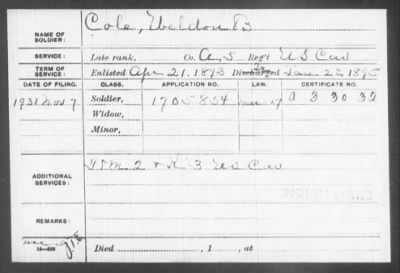 NAME OF SOLDIER: Cole, Weldon B
SERVICE: Late rank, Co. A. 5 Reg't U S Cav
TERM OF SERVICE: Enlisted Apr 21, 1893 Discharged Jan 22 1895
DATE OF FILING. CLASS. APPLICATION NO. LAW. CERTIFICATE NO.
1931 7 Soldier, 1705854 17 A 3 30 32
Widow,
Minor,
ADDITIONAL SERVICES: 2 + K-3 U S Cav
REMARKS:
Died , 1 , at